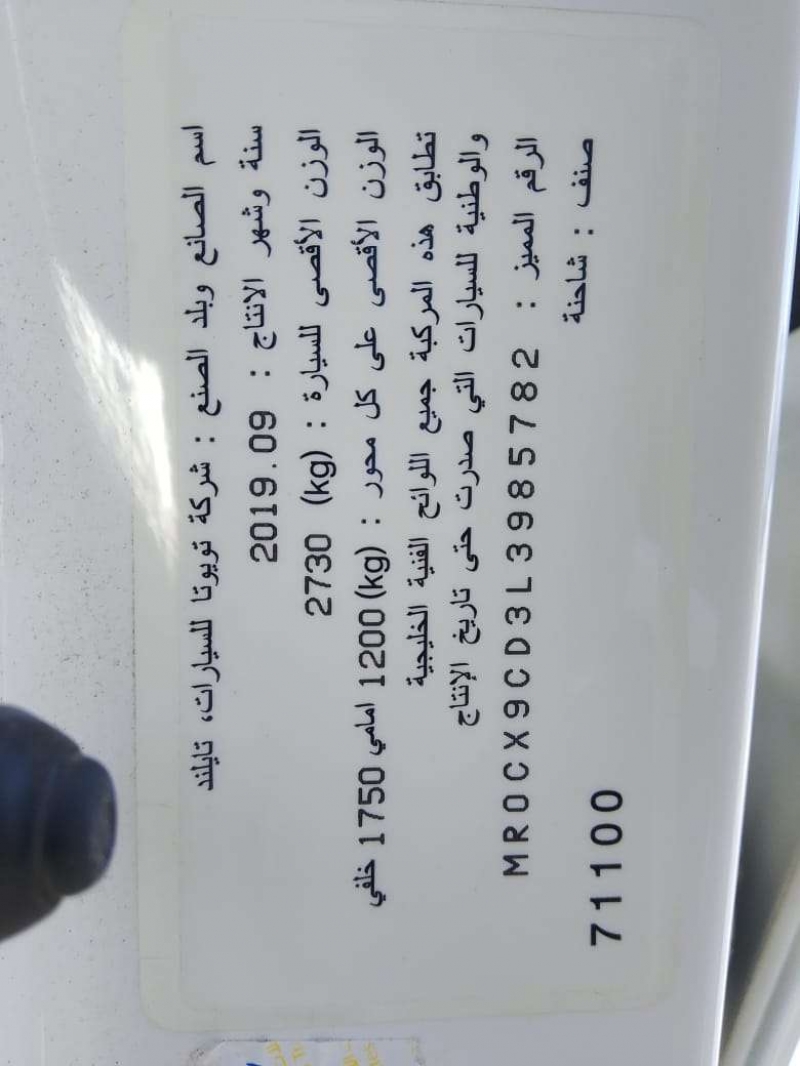 اسم الصانع وبلد الصنع : شركة تويوتا للسيارات، تايلند
سنة وشهر الانتاج : 2019.09
الوزن الأقصى للسيارة : (kg) 2730
الوزن الأقصى على كل محور : (kg) 1200 امامي 1750 خلفي
تطابق هذه المركبة جميع اللوائح الفنية الخليجية
والوطنية للسيارات التي صدرت حتى تاريخ الإنتاج
الرقم المميز : MR0CX9CD3L3985782
صنف : شاحنة
71100